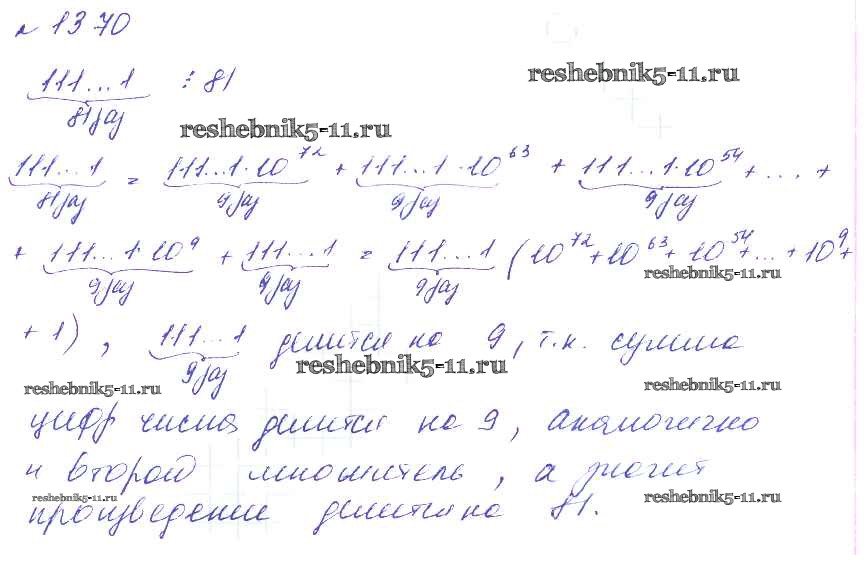 № 1370
111...1 ⋮ 81
81 раз
reshebnik5-11.ru
reshebnik5-11.ru
111...1 = 111...1·10^72 + 111...1·10^63 + 111...1·10^54 + ... +
81 раз 9 раз 9 раз 9 раз
+ 111...1·10^9 + 111...1 = 111...1 (10^72 + 10^63 + 10^54 + ... + 10^9 +
9 раз 9 раз 9 раз
reshebnik5-11.ru
+ 1), 111...1 делится на 9, т.к. сумма
9 раз
reshebnik5-11.ru
reshebnik5-11.ru
reshebnik5-11.ru
цифр числа делится на 9, аналогично
и второй множитель, а значит
reshebnik5-11.ru
reshebnik5-11.ru
произведение делится на 81.